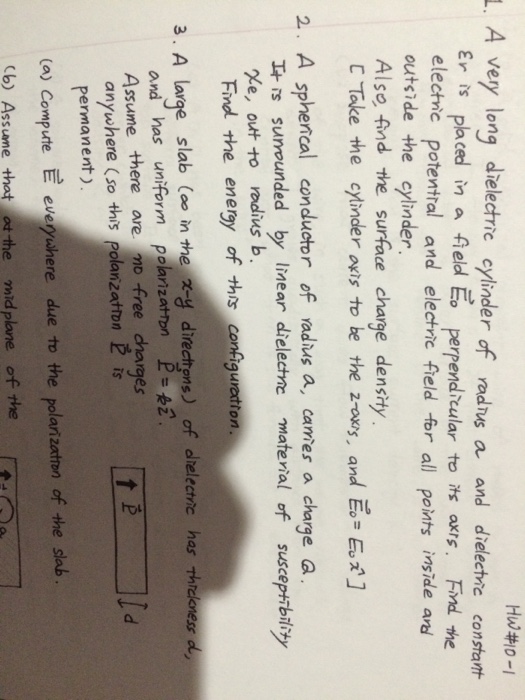 HW#10-1
1. A very long dielectric cylinder of radius a and dielectric constant
εr is placed in a field E⃗o perpendicular to its axis. Find the
electric potential and electric field for all points inside and
outside the cylinder.
Also, find the surface charge density.
[ Take the cylinder axis to be the z-axis, and E⃗o = Eo x̂ ]
2. A spherical conductor of radius a, carries a charge Q.
It is surrounded by linear dielectric material of susceptibility
χe, out to radius b.
Find the energy of this configuration.
3. A large slab (∞ in the x-y directions) of dielectric has thickness d,
and has uniform polarization P⃗ = kẑ.
Assume there are no free charges
anywhere (so this polarization P⃗ is
permanent).
↑ P⃗
d
(a) Compute E⃗ everywhere due to the polarization of the slab.
(b) Assume that at the midplane of the